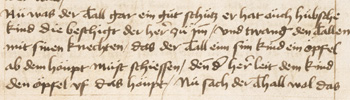 Nu was der Tall gar ein gut schütz er hat auch hübsche
kind die beschigt der her zu jm / vnd twang den Tallen
mit sinen knechten / das der Tall eim sim kind ein öpfel
ab dem houpt must schiessen / denn der her leit dem kind
den öpfel vf das houpt / Nu sach der Thall wol das